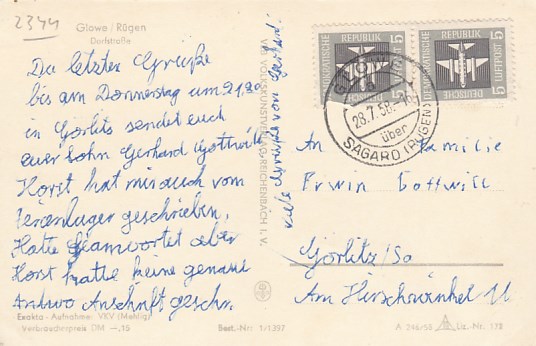 2344
Glowe / Rügen
Dorfstraße
Die letzten Grüße
bis am Donnerstag um 21,20
in Görlitz sendet euch
euer Sohn Gerhard Gottwilt
Horst hat mir auch vom
Ferienlager geschrieben,
Hatte Geanwortet aber
Horst hatte keine genaue
Anschrift geschr.
Exakta - Aufnahme: VKV (Mehlig)
Verbraucherpreis DM —,15
Best.-Nr: 1/1397
VEB VOLKSKUNSTVERLAG REICHENBACH I. V.
viele Grüße von Gerhard!
DEMOKRATISCHE
REPUBLIK
LUFTPOST 5
DEUTSCHE
DEMOKRATISCHE
REPUBLIK
LUFTPOST 5
DEUTSCHE
GLOWE
28.7.58
über
SAGARD (RÜGEN)
An Familie
Erwin Gottwilt
Görlitz/Sa
Am Hirschwinkel 11
A 246/58 Liz.-Nr. 172